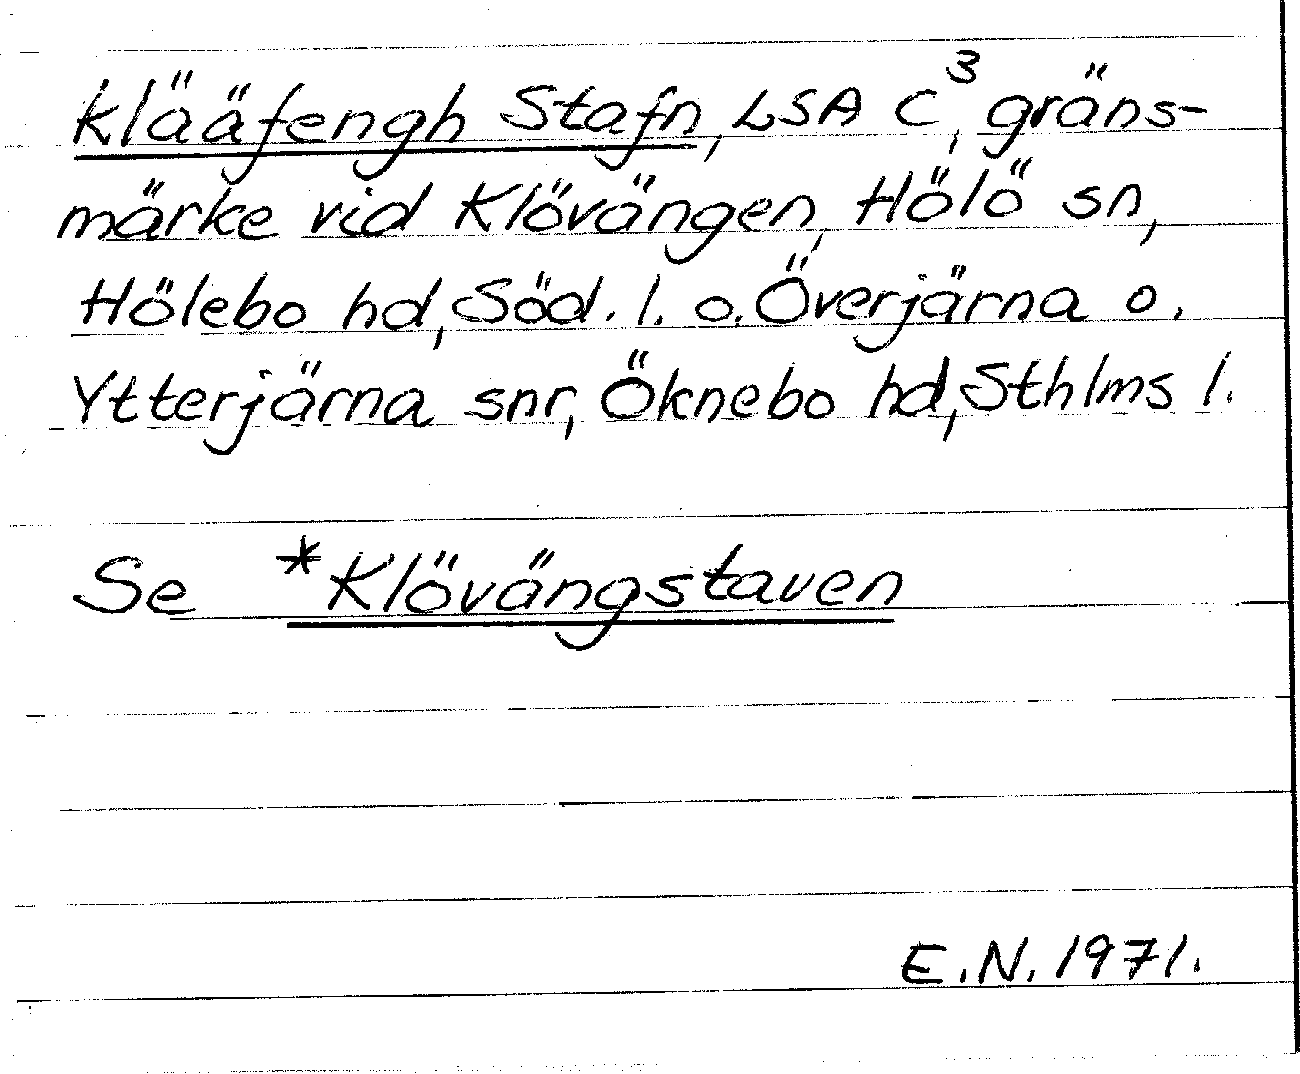 klääfengh Stafn, LSA C³, gräns-
märke vid Klövängen, Hölö sn,
Hölebo hd, Söd. l. o. Överjärna o.
Ytterjärna snr, Öknebo hd, Sthlms l.
Se *Klövängstaven
E.N. 1971.